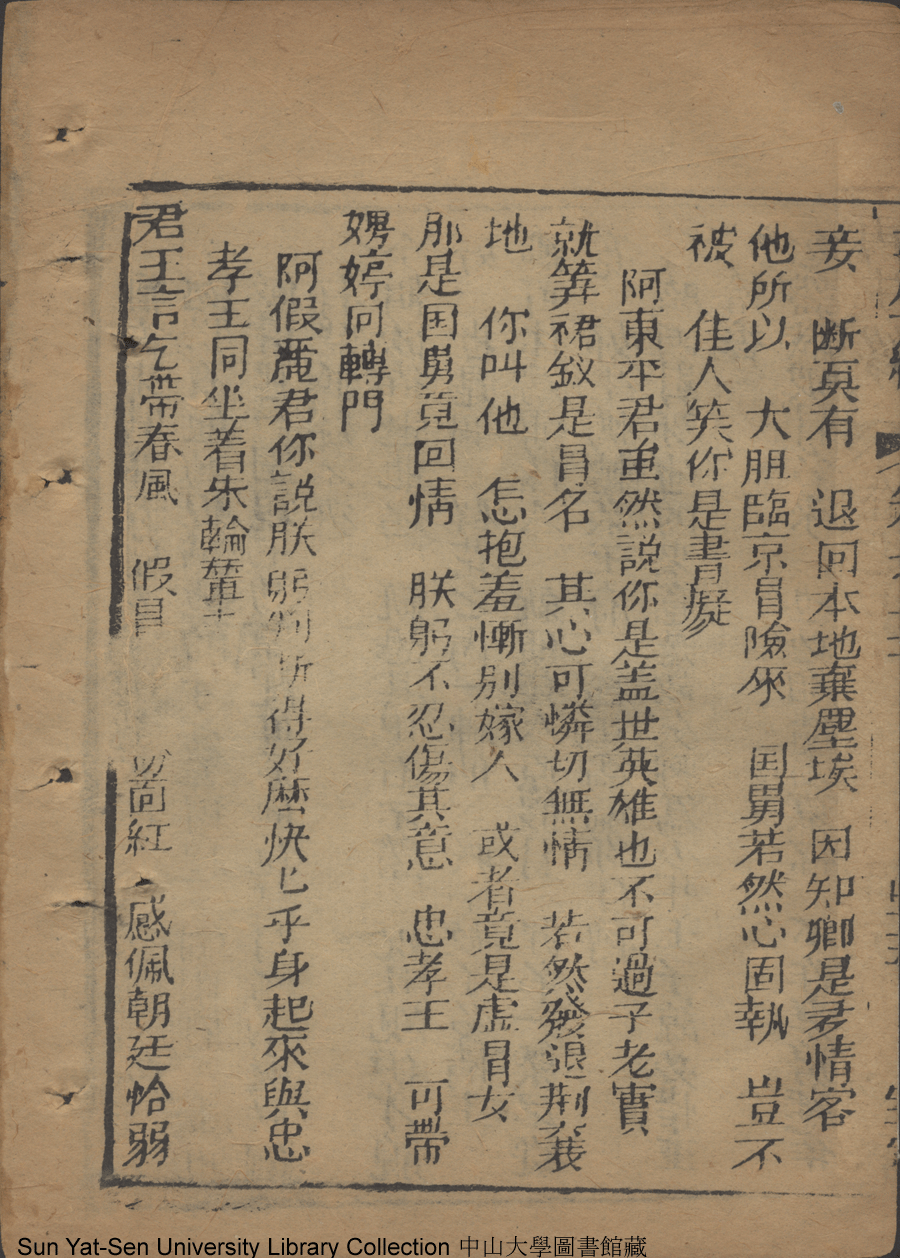 妾　断真有　退回本地棄塵埃　因知卿是多情客
他所以　大胆臨京冒險來　国男若然心固執　豈不
被　佳人笑你是書癡
阿東平君虽然説你是盖世英雄也不可過于老實
就筭裙釵是冒名　其心可憐切無情　若然發退荆裁
地　你叫他　怎抱羞慚別嫁人　或者竟是虛冒女
那是国舅竟回情　朕躬不忍傷其意　忠孝王　可帶
娚婷回轉門
阿假麗君你説朕躬判断得好庅快乜乎身起來與忠
孝王同坐着朱輪輦
君王言乞帶春風　假冒　面紅　感佩朝廷恰弱
Sun Yat-Sen University Library Collection 中山大學圖書館藏